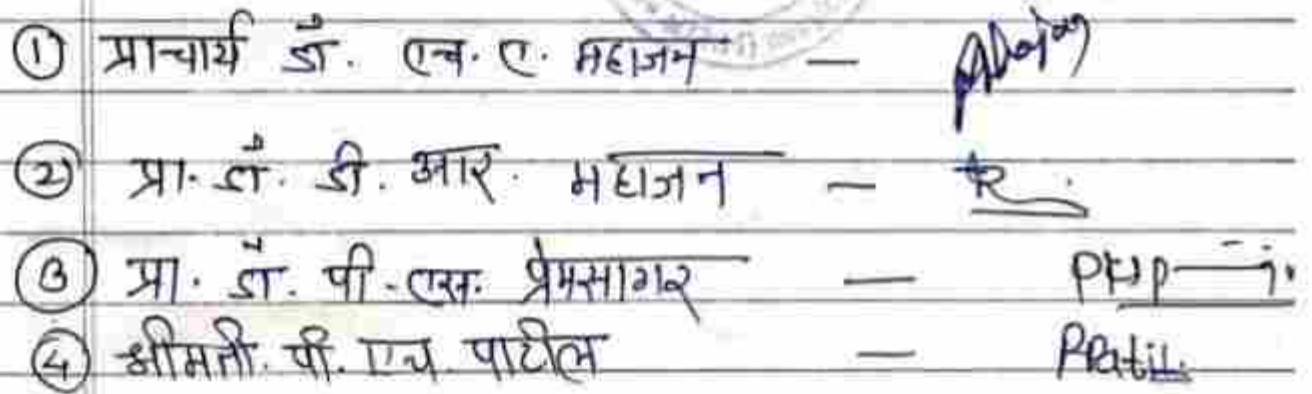 ① प्राचार्य डॉ. एच. ए. महाजन —
② प्रा. डॉ. डी. आर. महाजन —
③ प्रा. डॉ. पी. एस. प्रेमसागर —
④ श्रीमती. पी. एच. पाटील — PPatil